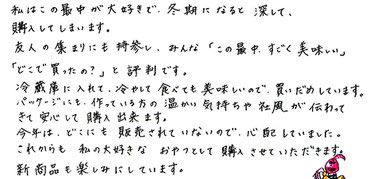 私はこの最中が大好きで、冬期になると 探して、
購入してしまいます。
友人の集まりにも持参し、みんな「この最中、すごく美味しい」
「どこで買ったの？」と評判です。
冷蔵庫に入れて、冷やして食べても美味しいので、買いだめしています。
パッケージにも、作っている方の温かい気持ちや社風が伝わって
きて安心して購入出来ます。
今年は、どこにも販売されていないので、心配していました。
これからも 私の大好きな おやつとして購入させていただきます。
新商品も楽しみにしています。